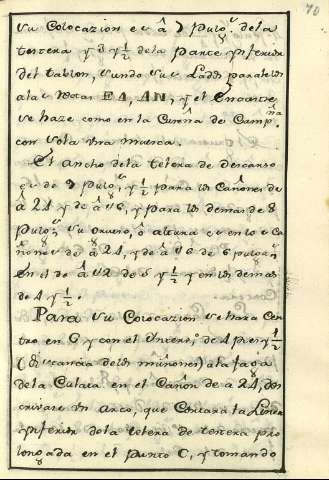 70
su Colocazion es â 7 pulg.s dela
tercera y 3 y 1/2 dela parte ynferior
del tablon, siendo sus Lados paralelos
alas Rectas EA, AN, y el Encastre
se haze como en la Cureña de Camp.ña
con sola una muesca.
El ancho dela telera de descanso
es de 9 pulg.s y 1/2 para los Cañones de
â 24 y de â 16, y para los demas de 8
pulg.s su grueso, ô altura es en los Ca
ñones de â 24, y de â 16 de 6 pulgas
en el de â 12 de 5 y 1/2 y en los demas
de 4 y 1/2.
Para su Colocazion se hara Cen
tro en G y con el Interv.o de 4 pies y 1/2
(distancia delos muñones) ala faxa
dela Culata en el Cañon de a 24, des
crivase un Arco, que Cortara la Linea
ynferior dela telera de tercera pro
longada en el punto C, y tomando